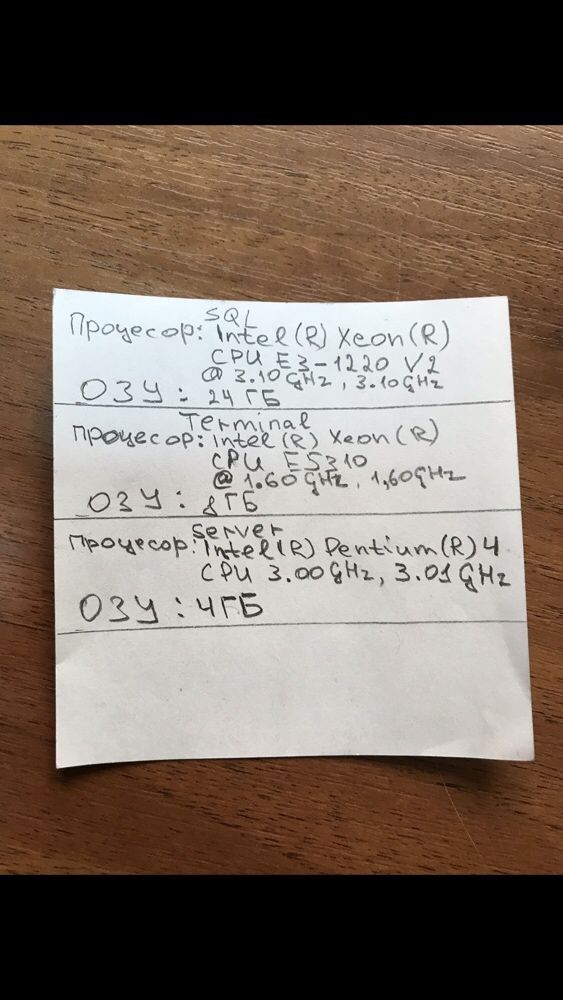 SQL
Процесор: Intel(R) Xeon(R)
CPU E3-1220 V2
@ 3.10GHz, 3.10GHz
ОЗУ: 24ГБ
Terminal
Процесор: Intel(R) Xeon(R)
CPU E5310
@ 1.60GHz, 1,60GHz
ОЗУ: 8ГБ
Server
Процесор: Intel(R) Pentium(R) 4
CPU 3.00GHz, 3.01GHz
ОЗУ: 4ГБ